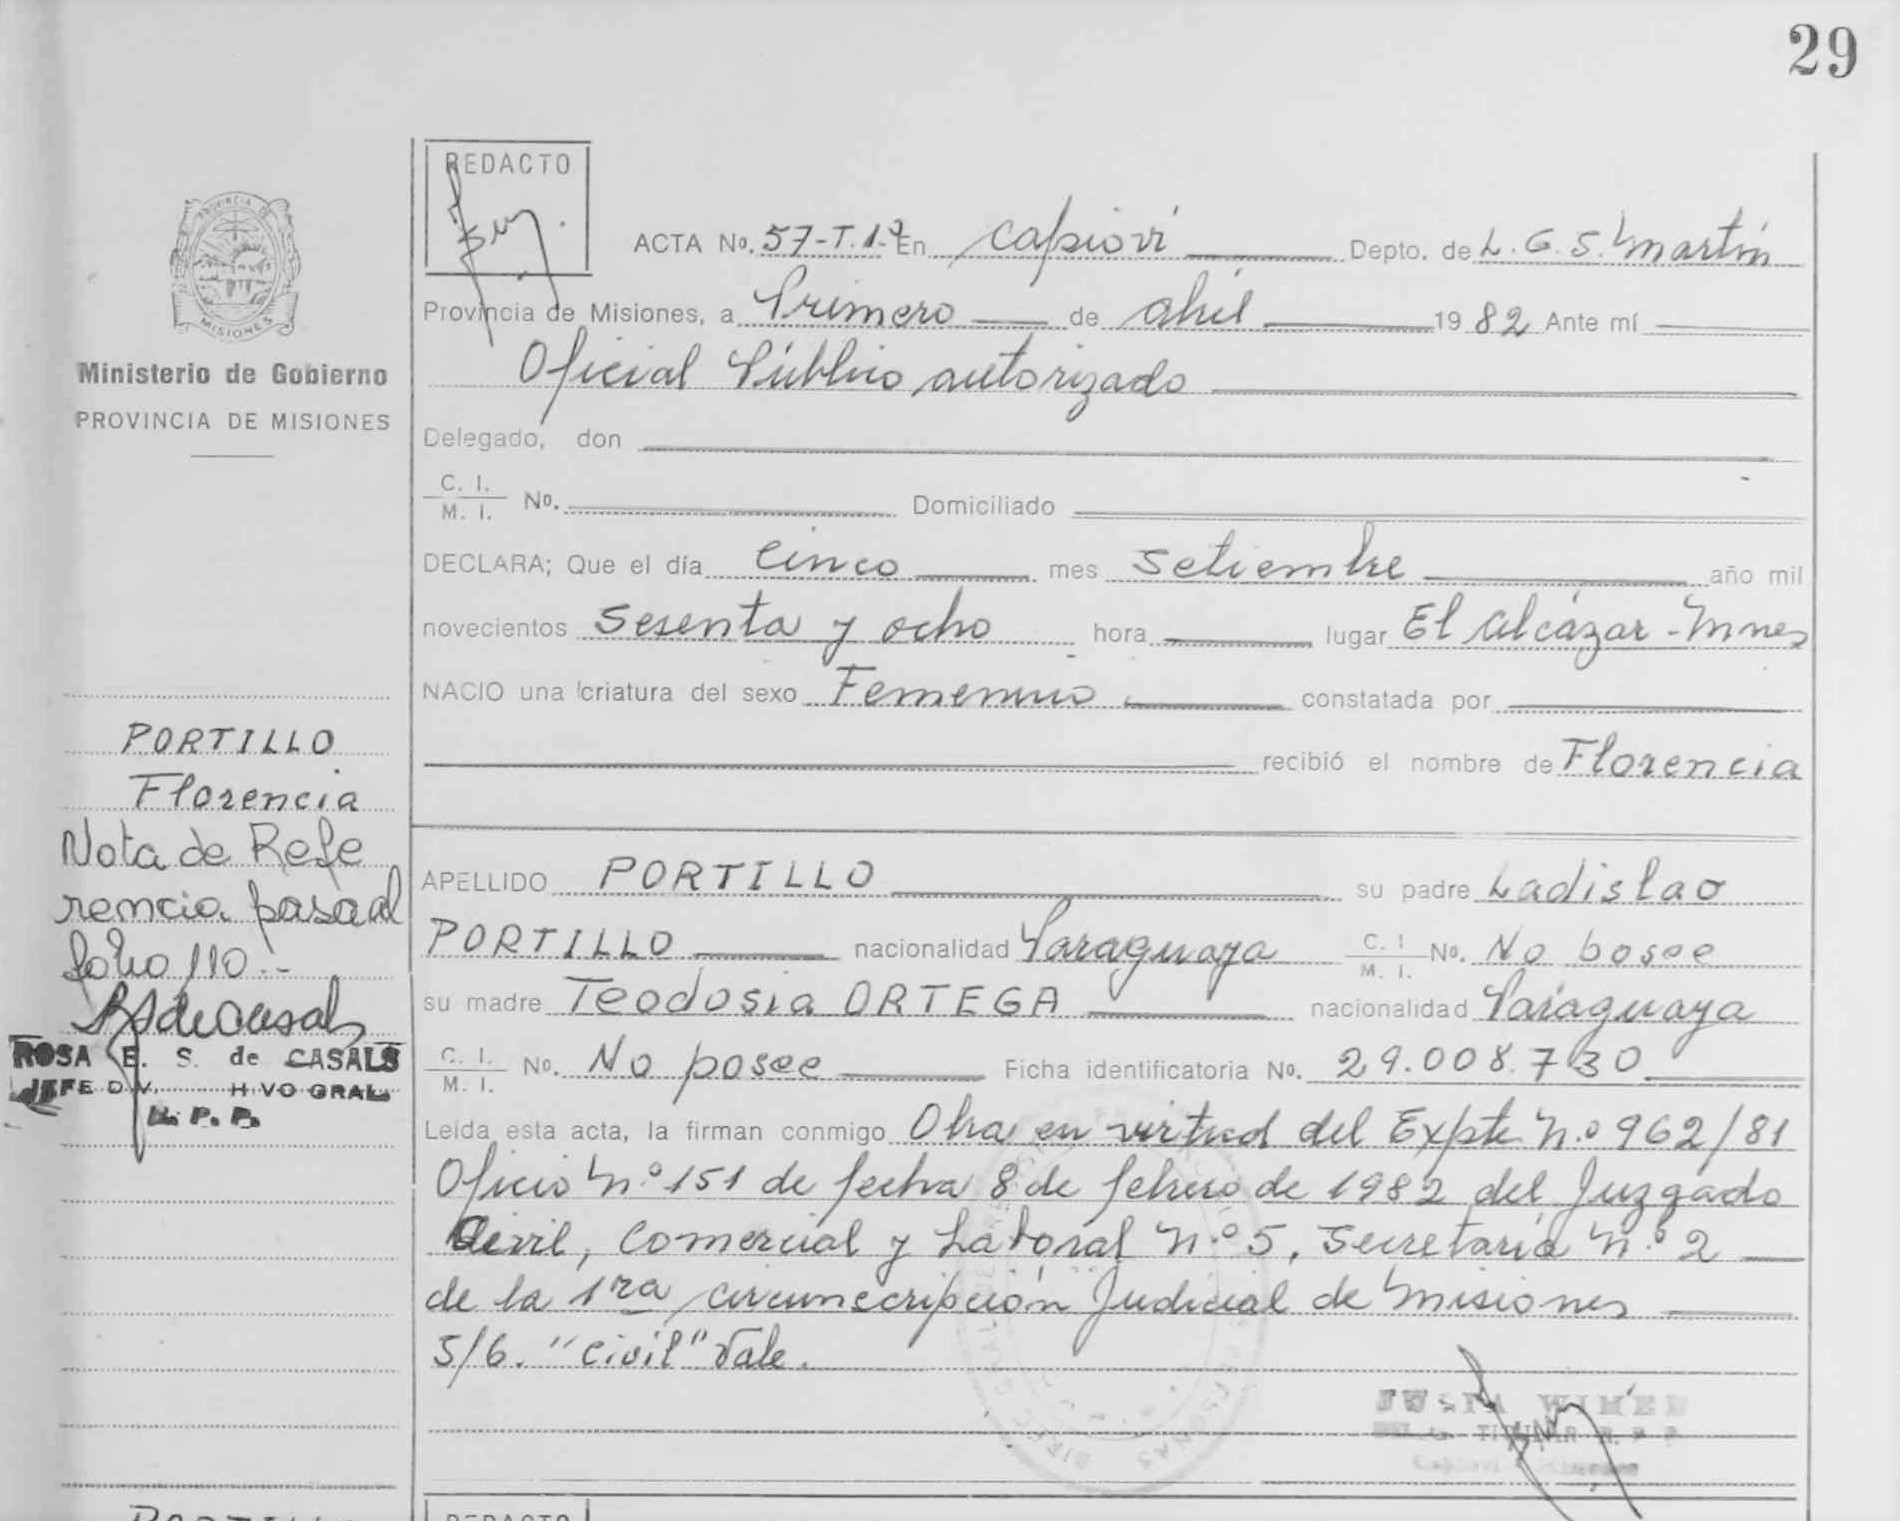 29
PROVINCIA DE
MISIONES
Ministerio de Gobierno
PROVINCIA DE MISIONES
PORTILLO
Florencia
Nota de Refe
rencia pasa al
folio 110.-
ROSA E. S. de CASALS
JEFE DIV. HIVO GRAL.
R. P. P.
REDACTO
ACTA No. 57-T.1º En Capioví Depto. de L. G. S. Martín
Provincia de Misiones, a Primero de abril 1982 Ante mí
Oficial Público autorizado
Delegado, don
C. I. / M. I. No. Domiciliado
DECLARA; Que el día cinco mes Setiembre año mil
novecientos Sesenta y ocho hora lugar El Alcázar - Mnes
NACIO una criatura del sexo Femenino constatada por
recibió el nombre de Florencia
APELLIDO PORTILLO su padre Ladislao
PORTILLO nacionalidad Paraguaya C. I / M. I. No. No posee
su madre Teodosia ORTEGA nacionalidad Paraguaya
C. I. / M. I. No. No posee Ficha identificatoria No. 29.008.730
Leída esta acta, la firman conmigo Obra en virtud del Expte N.º 962/81
Oficio N.º 151 de fecha 8 de febrero de 1982 del Juzgado
Civil, Comercial y Laboral N.º 5, Secretaría N.º 2
de la 1ra circunscripción Judicial de Misiones
S/6. "Civil" Vale.
TITULAR R. P. P.
PORTILLO
REDACTO